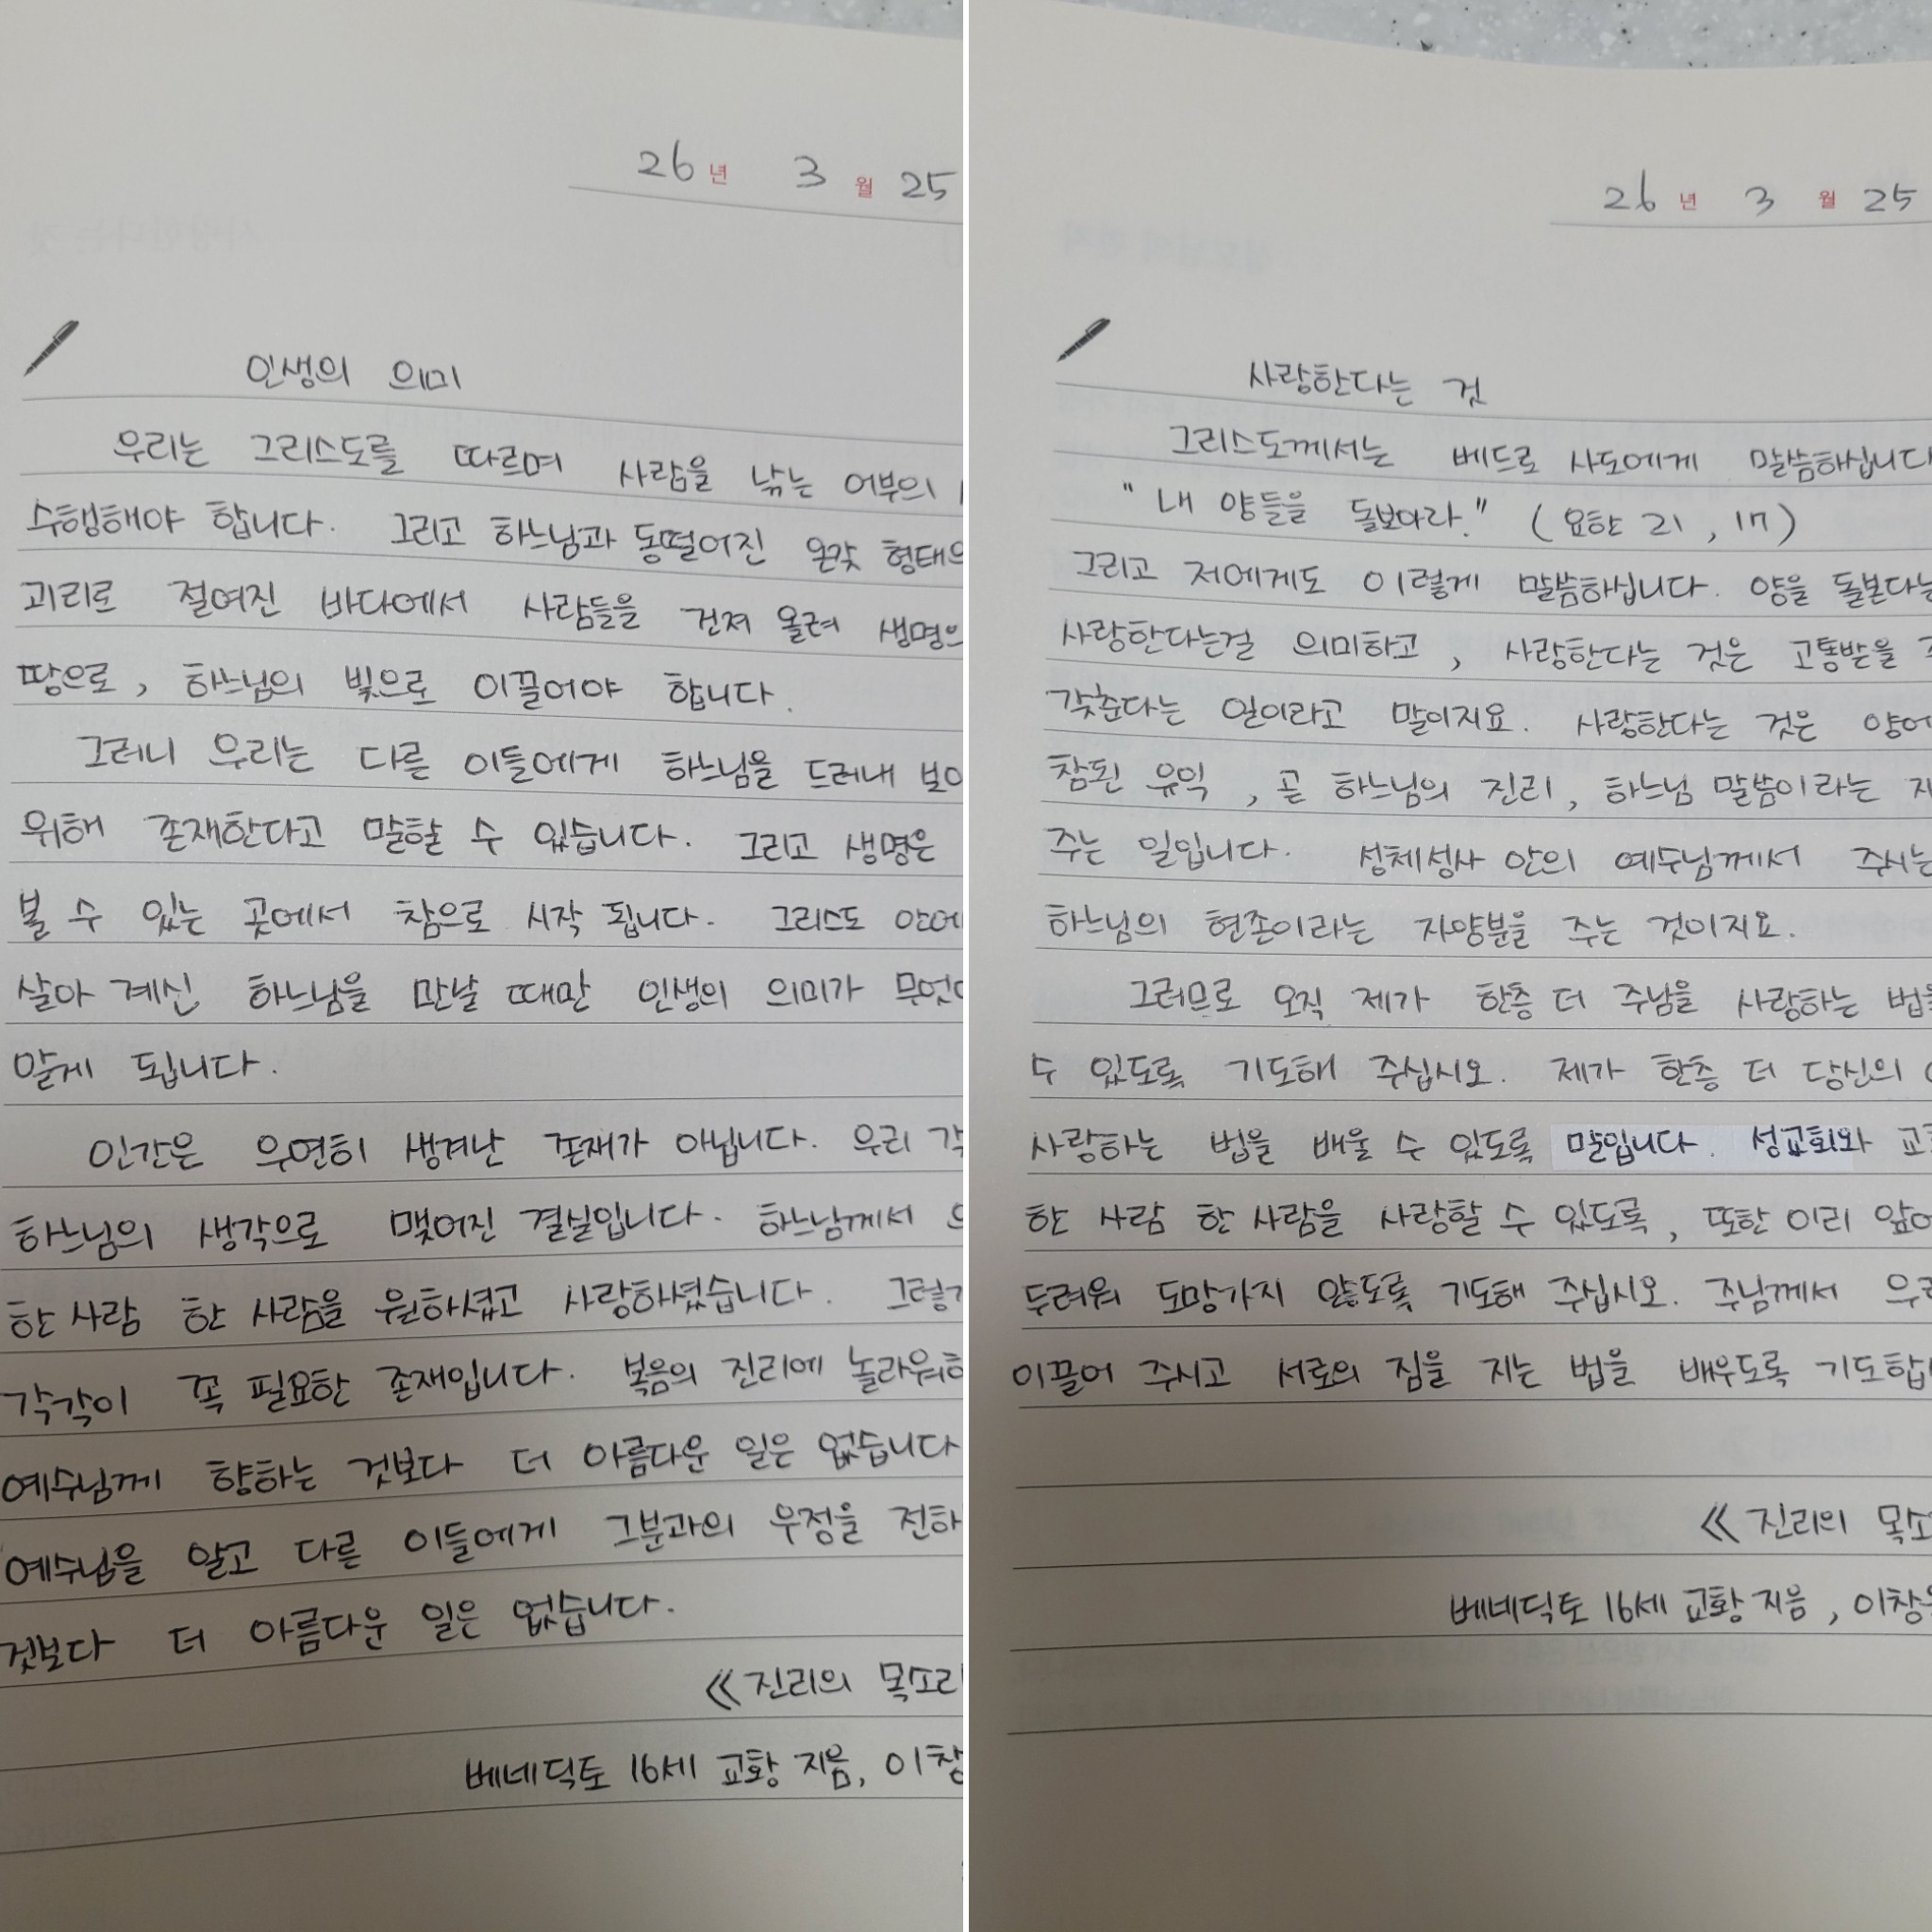 26 년 3 월 25
인생의 의미
우리는 그리스도를 따르며 사람을 낚는 어부의
수행해야 합니다. 그리고 하느님과 동떨어진 온갖 형태의
괴리로 절여진 바다에서 사람들을 건져 올려 생명의
땅으로, 하느님의 빛으로 이끌어야 합니다.
그러니 우리는 다른 이들에게 하느님을 드러내 보이
위해 존재한다고 말할 수 있습니다. 그리고 생명은
볼 수 있는 곳에서 참으로 시작 됩니다. 그리스도 안에
살아 계신 하느님을 만날 때만 인생의 의미가 무엇이
알게 됩니다.
인간은 우연히 생겨난 존재가 아닙니다. 우리 각
하느님의 생각으로 맺어진 결실입니다. 하느님께서
한 사람 한 사람을 원하셨고 사랑하셨습니다.
각각이 꼭 필요한 존재입니다. 복음의 진리에 놀라워하
예수님께 향하는 것보다 더 아름다운 일은 없습니다
예수님을 알고 다른 이들에게 그분과의 우정을 전하
것보다 더 아름다운 일은 없습니다.
《진리의 목소리
베네딕토 16세 교황 지음, 이창
26 년 3 월 25
사랑한다는 것
그리스도께서는 베드로 사도에게 말씀하십니다
"내 양들을 돌보아라." (요한 21, 17)
그리고 저에게도 이렇게 말씀하십니다. 양을 돌본다는
사랑한다는걸 의미하고, 사랑한다는 것은 고통받을
갖춘다는 일이라고 말이지요. 사랑한다는 것은 양에
참된 유익, 곧 하느님의 진리, 하느님 말씀이라는
주는 일입니다. 성체성사 안의 예수님께서 주시는
하느님의 현존이라는 자양분을 주는 것이지요.
그러므로 오직 제가 한층 더 주님을 사랑하는 법을
수 있도록 기도해 주십시오. 제가 한층 더 당신의
사랑하는 법을 배울 수 있도록 말입니다. 성교회와
한 사람 한 사람을 사랑할 수 있도록, 또한 이리 앞에
두려워 도망가지 않도록 기도해 주십시오. 주님께서 우리
이끌어 주시고 서로의 짐을 지는 법을 배우도록 기도합
《진리의 목소
베네딕토 16세 교황 지음, 이창